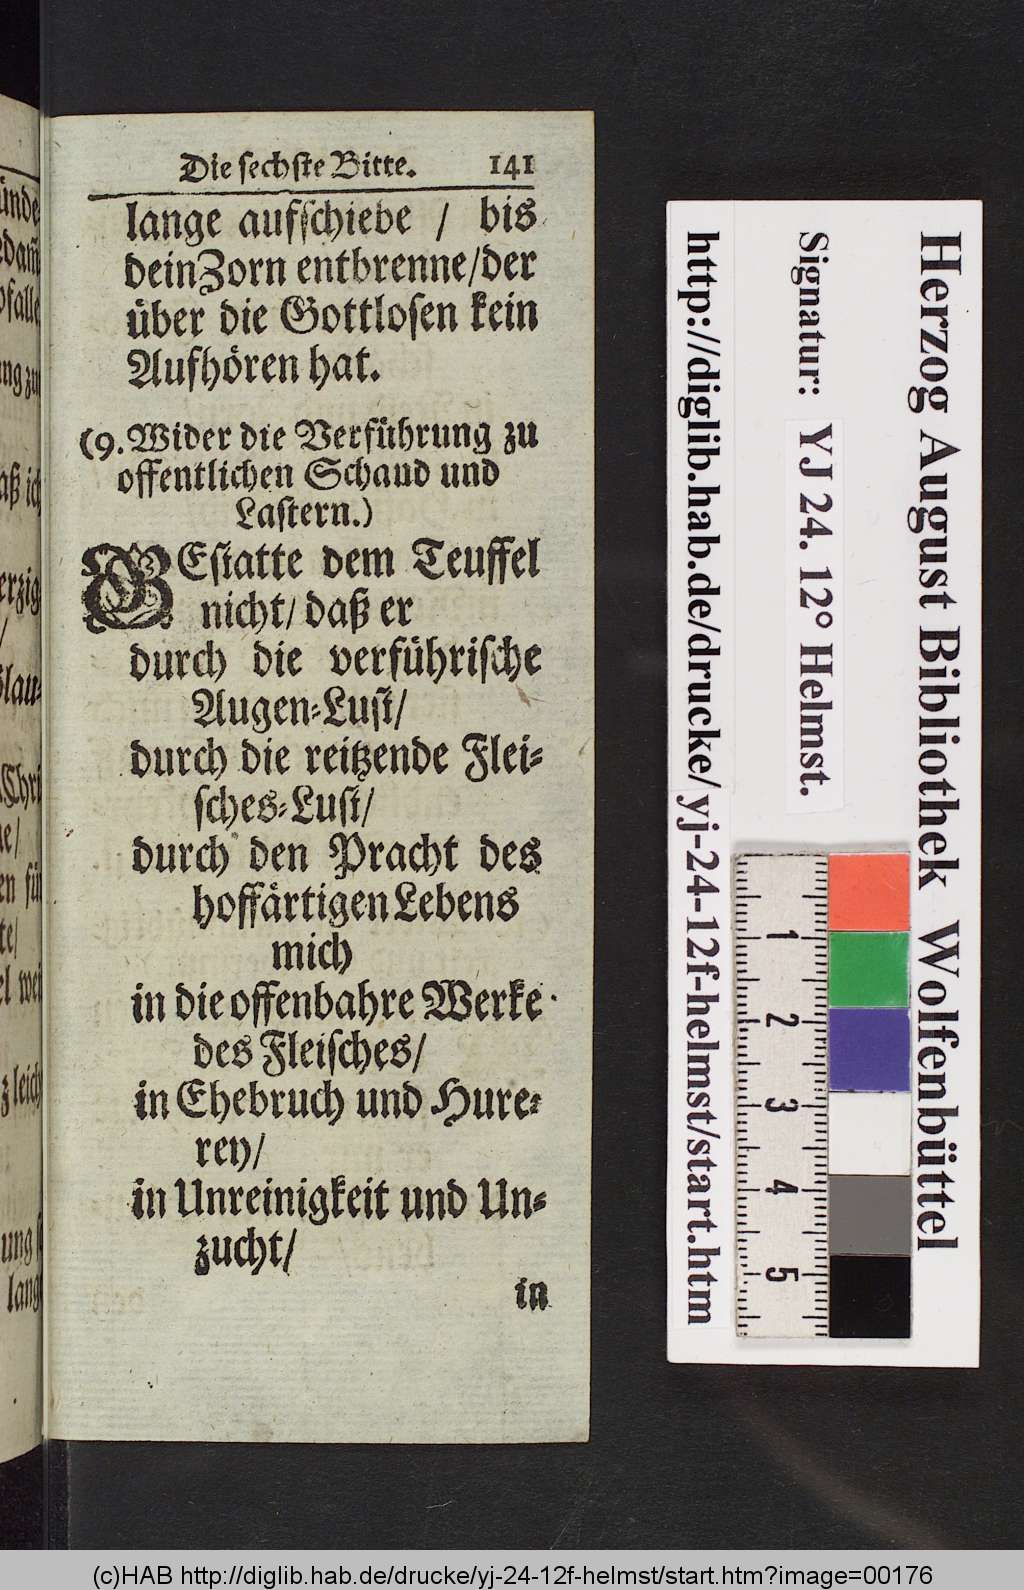 Die sechste Bitte. 141
lange aufschiebe / bis
dein Zorn entbrenne/der
über die Gottlosen kein
Aufhören hat.
(9. Wider die Verführung zu
offentlichen Schand und
Lastern.)
GEstatte dem Teuffel
nicht/ daß er
durch die verführische
Augen-Lust/
durch die reitzende Flei-
sches-Lust/
durch den Pracht des
hoffärtigen Lebens
mich
in die offenbahre Werke
des Fleisches/
in Ehebruch und Hure-
rey/
in Unreinigkeit und Un-
zucht/
in
Herzog August Bibliothek Wolfenbüttel
Signatur: YJ 24. 12° Helmst.
http://diglib.hab.de/drucke/yj-24-12f-helmst/start.htm
1
2
3
4
5
(c)HAB http://diglib.hab.de/drucke/yj-24-12f-helmst/start.htm?image=00176